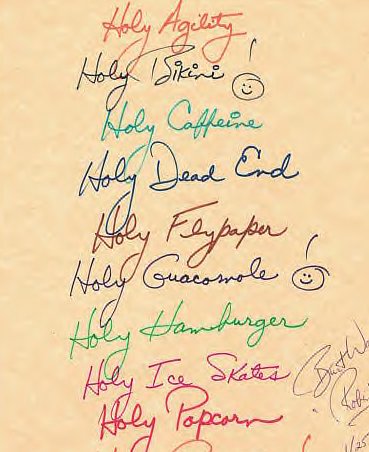 Holy Agility
Holy Bikini!
Holy Caffeine
Holy Dead End
Holy Flypaper
Holy Guacomole!
Holy Hamburger
Holy Ice Skates
Holy Popcorn
Burt